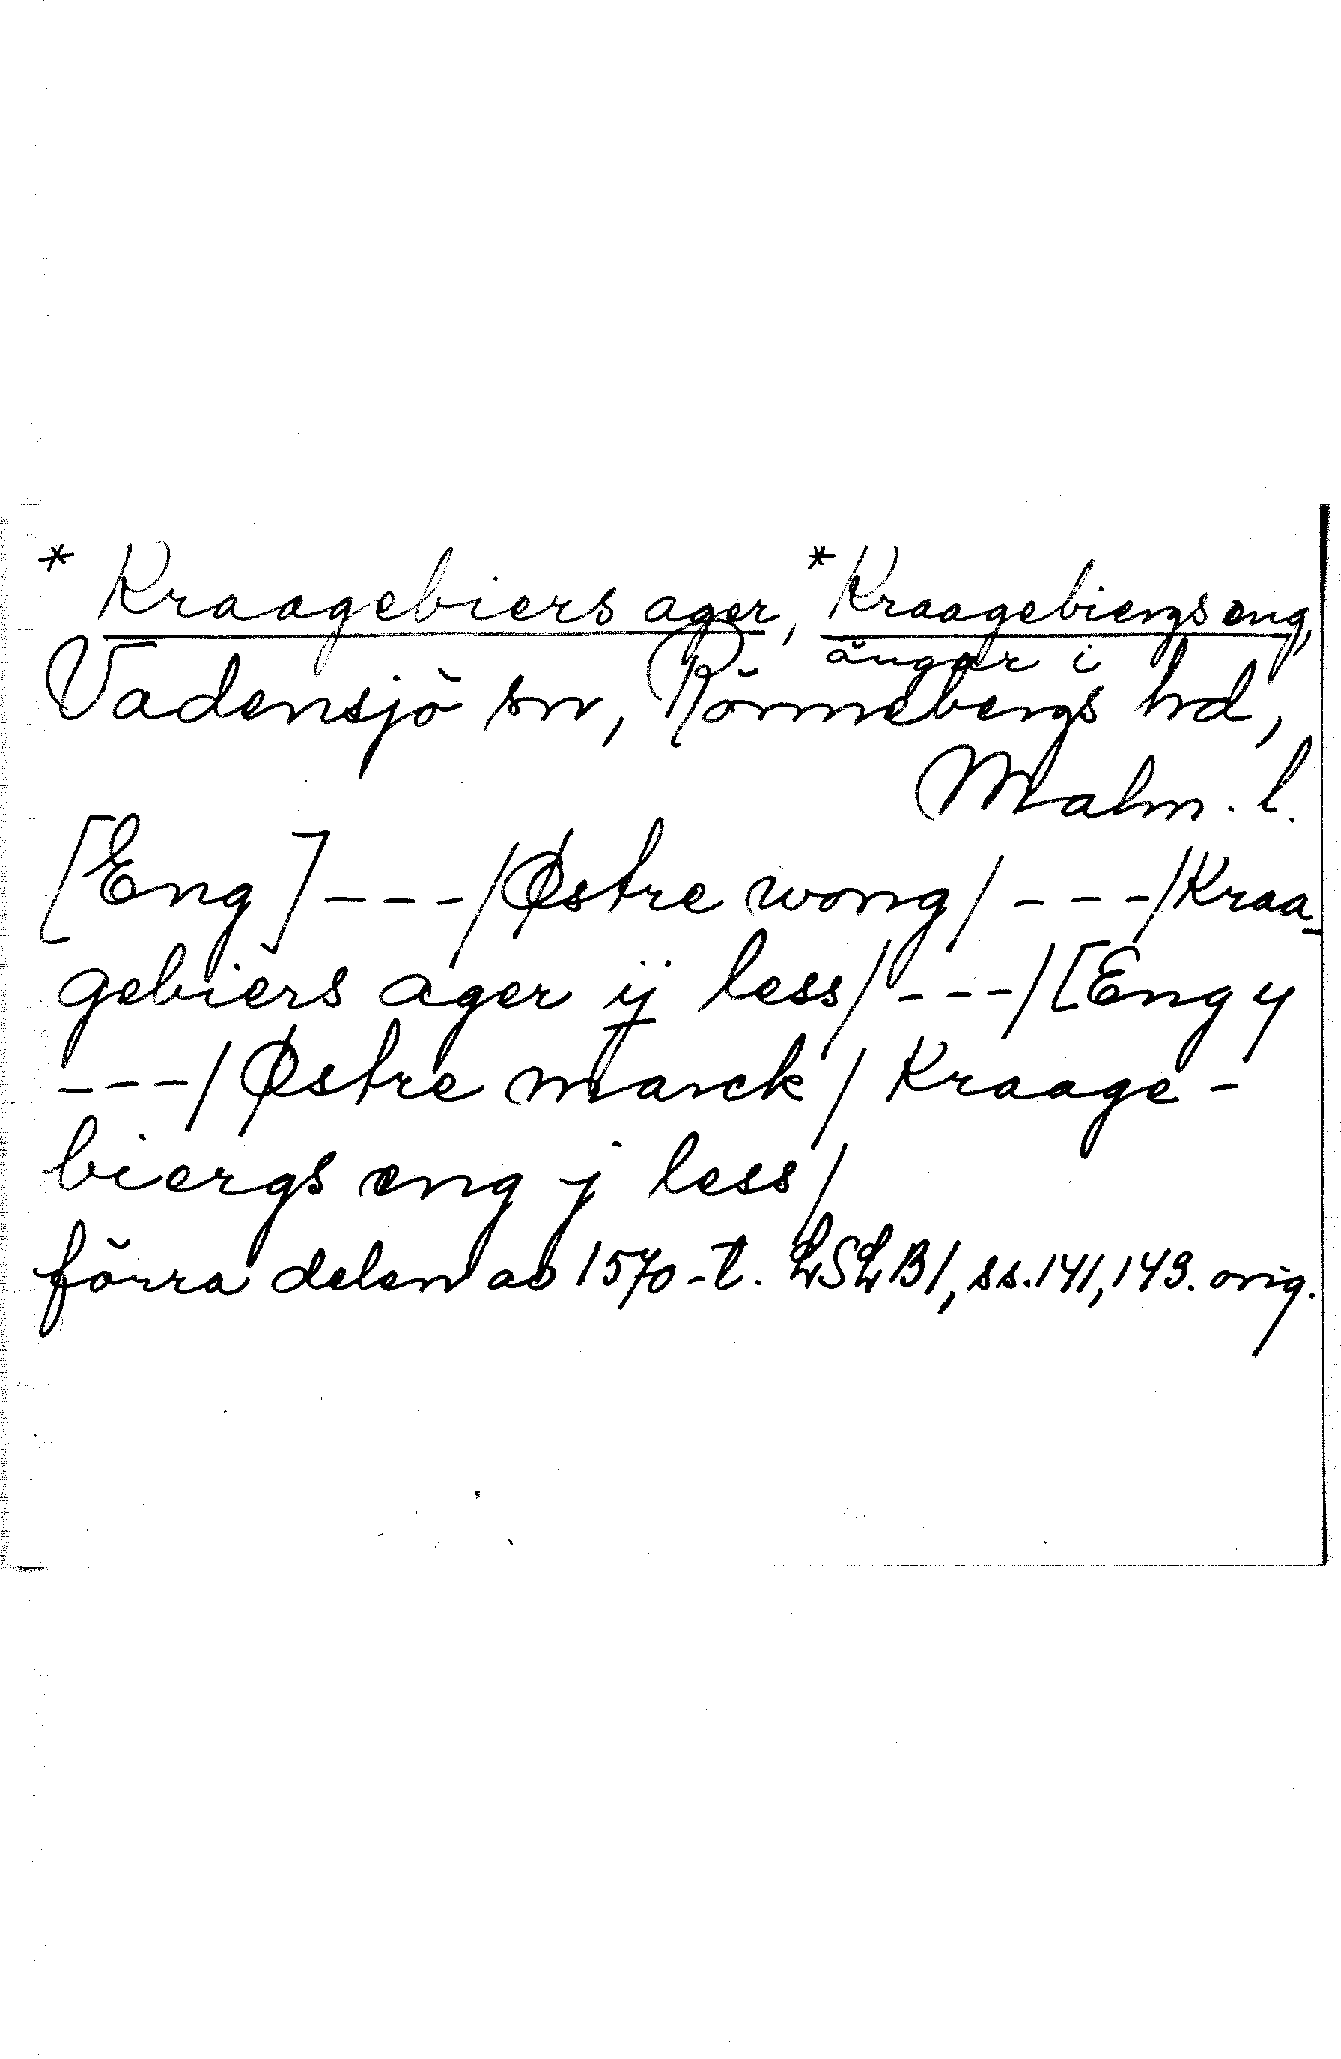 * Kraagebiers ager, * Kraagebiergs eng,
ängar i
Vadensjö sn, Rönnebergs hd,
Malm. l.
[Eng] ---/Østre wong/ ---/Kraa-
gebiers ager ij less/ ---/[Eng y
---/ Østre marck/ Kraage-
biergs eng j less/
förra delen av 1570-t. LSLB1, ss. 141, 143. orig.